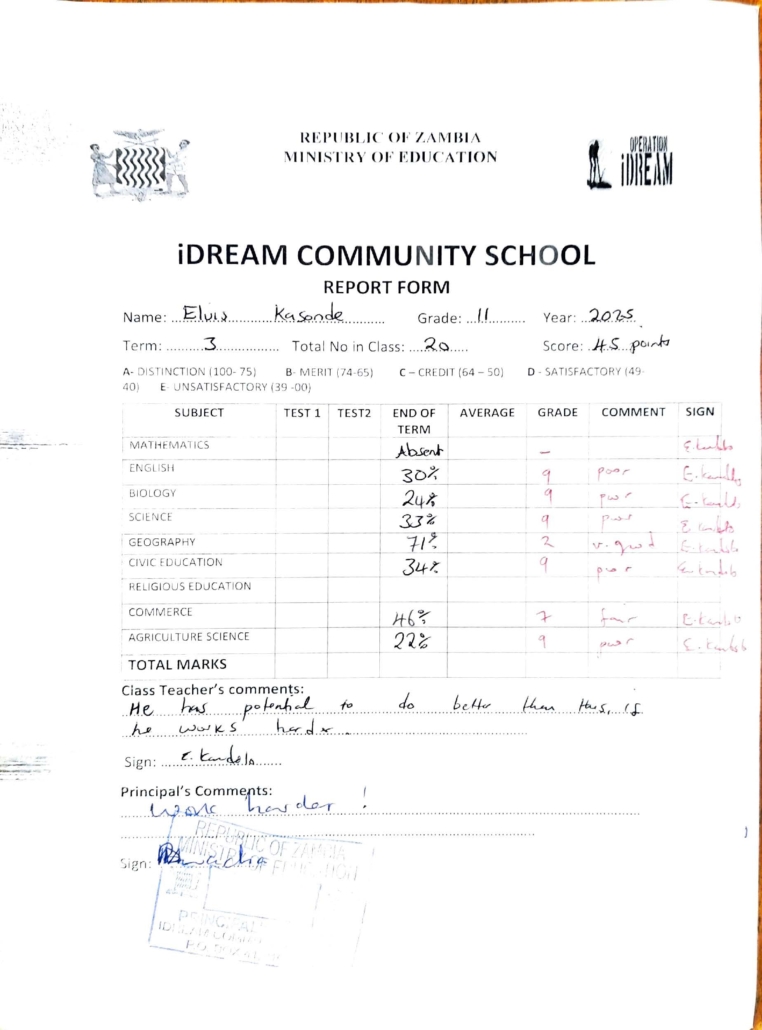 REPUBLIC OF ZAMBIA
MINISTRY OF EDUCATION
OPERATION
iDREAM
iDREAM COMMUNITY SCHOOL
REPORT FORM
Name: Elvis Kasonde Grade: 11 Year: 2025
Term: 3 Total No in Class: 20 Score: 45 points
A- DISTINCTION (100- 75) B- MERIT (74-65) C – CREDIT (64 – 50) D - SATISFACTORY (49-
40) E- UNSATISFACTORY (39 -00)
SUBJECT TEST 1 TEST2 END OF TERM AVERAGE GRADE COMMENT SIGN
MATHEMATICS Absent –
ENGLISH 30% 9 poor
BIOLOGY 24% 9 poor
SCIENCE 33% 9 poor
GEOGRAPHY 71% 2 v. good
CIVIC EDUCATION 34% 9 poor
RELIGIOUS EDUCATION
COMMERCE 46% 7 fair
AGRICULTURE SCIENCE 22% 9 poor
TOTAL MARKS
Class Teacher's comments:
He has potential to do better than this, if
he works harder.
Sign:
Principal's Comments:
Work harder !
Sign:
REPUBLIC OF ZAMBIA
MINISTRY OF EDUCATION
PRINCIPAL